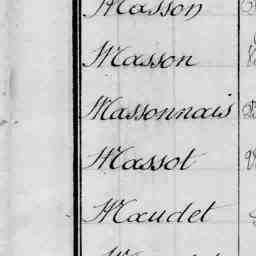 Masson
Masson
Massonnais
Massot
Maudet